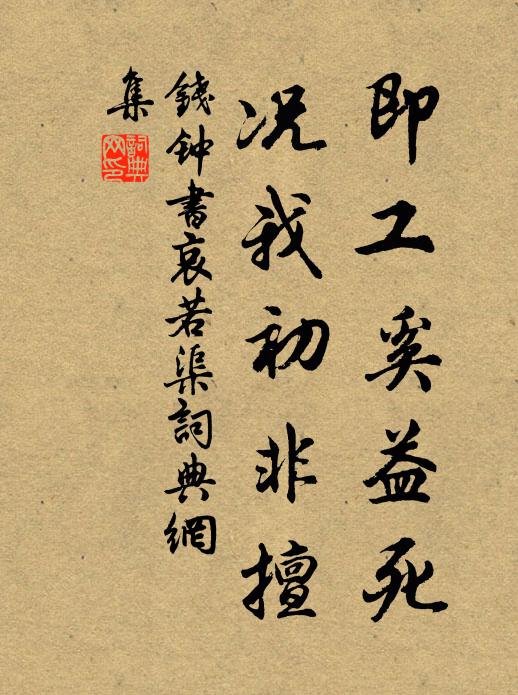 即工奚益死
况我初非擅
錢钟書哀若渠詞典網
集
詞典
网印